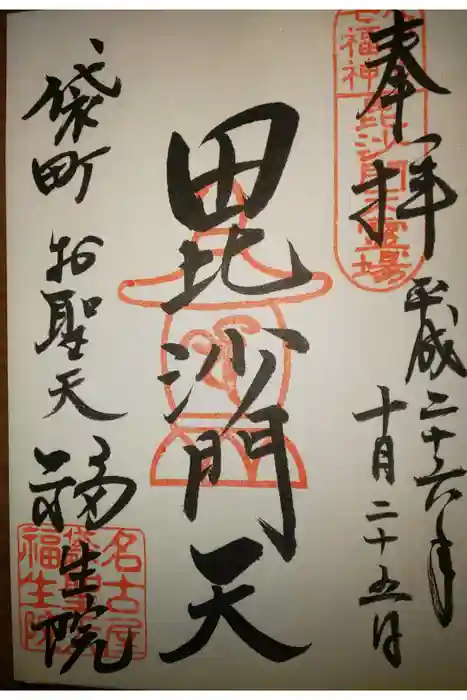 奉拝
平成二十六年
十月二十五日
毘沙門天
袋町 お聖天 福生院
七福神
毘沙門天霊場
名古屋
福生院